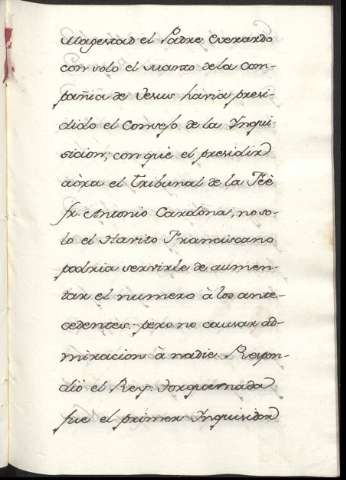 Magestad el Padre Everardo
con solo el manto de la Com-
pañia de Jesus havia presi-
dido el Consejo de la Inqui-
sicion; con què el presidir
aora el Tribunal de la Feè
fr. Antonio Cardona, no so-
lo el Havito Franciscano
podria servirle de aumen-
tar el numero à los ante-
cedentes. pero no causar ad-
miracion à nadie. Respon-
dió el Rey. Torquemada
fue el primer Inquisidor